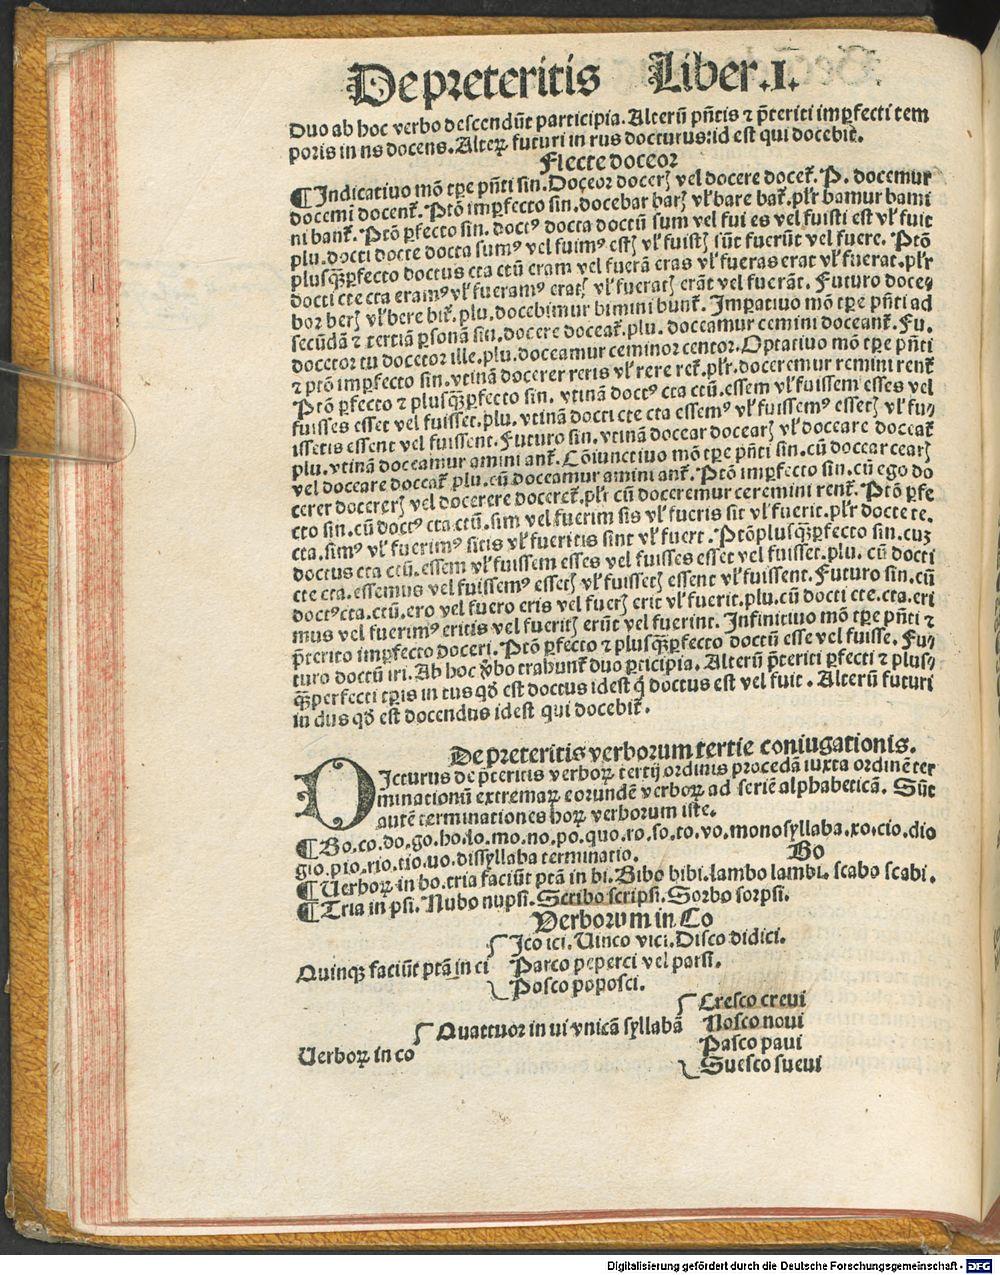 De preteritis Liber.I.
Duo ab hoc verbo descendūt participia. Alterū pñtis ⁊ p̄teriti imꝑfecti tem
poris in ns docens. Alteꝝ futuri in rus docturus: id est qui docebit.
Flecte doceor
¶ Indicatiuo mō tꝑe pñti sin. Doceor docerꝭ vel docere docet᷑. P. docemur
docemī docent᷑. Ptō imꝑfecto sin. docebar barꝭ vl̓ bare bat᷑. pl̓r bamur bami
ni bant᷑. Ptō ꝑfecto sin. doctꝰ docta doctū sum vel fui es vel fuisti est vl̓ fuit
plu. docti docte docta sumꝰ vel fuimꝰ estꝭ vl̓ fuistꝭ sūt fuerūt vel fuere. Ptō
plusq̄ꝑfecto doctus cta ctū eram vel fuerā eras vl̓ fueras erat vl̓ fuerat. pl̓r
docti cte cta eramꝰ vl̓ fueramꝰ eratꝭ vl̓ fueratꝭ erāt vel fuerāt. Futuro doce⸗
bor berꝭ vl̓ bere bit᷑. plu. docebimur bimini bunt᷑. Imꝑatiuo mō tꝑe pñti ad
secūdā ⁊ tertiā ꝑsonā sin. docere doceat᷑. plu. doceamur cemini doceant᷑. Fu.
docetor tu docetor ille. plu. doceamur ceminor centor. Optatiuo mō tꝑe pñti
⁊ ptō imꝑfecto sin. vtinā docerer reris vl̓ rere ret᷑. pl̓r. doceremur remini rent᷑
Ptō ꝑfecto ⁊ plusq̄ꝑfecto sin. vtinā doctꝰ cta ctū. essem vl̓ fuissem esses vel
fuisses esset vel fuisset. plu. vtinā docti cte cta essemꝰ vl̓ fuissemꝰ essetꝭ vl̓ fu⸗
issetis essent vel fuissent. Futuro sin. vtinā docear docearꝭ vl̓ doceare doceat᷑
plu. vtinā doceamur amini ant᷑. Cōiunctiuo mō tꝑe pñti sin. cū docear cearꝭ
vel doceare doceat᷑ plu. cū doceamur amini ant᷑. Ptō imꝑfecto sin. cū ego do
cerer docererꝭ vel docerere doceret᷑. pl̓r cū doceremur ceremini rent᷑. Ptō ꝑfe
cto sin. cū doctꝰ cta ctū. sim vel fuerim sis vl̓ fueris sit vl̓ fuerit. pl̓r docte te.
cta. simꝰ vl̓ fuerimꝰ sitis vl̓ fueritis sint vl̓ fuert. Ptōplusq̄ꝑfecto sin. cuꝫ
doctus cta ctū. essem vl̓ fuissem esses vel fuisses esset vel fuisset. plu. cū docti
cte cta. essemus vel fuissemꝰ essetꝭ vl̓ fuissetꝭ essent vl̓ fuissent. Futuro sin. cū
doctꝰ cta. ctū. ero vel fuero eris vel fuerꝭ erit vl̓ fuerit. plu. cū docti cte. cta. eri
mus vel fuerimꝰ eritis vel fueritꝭ erūt vel fuerint. Infinitiuo mō tꝑe pñti ⁊
p̄terito imꝑfecto doceri. Ptō ꝑfecto ⁊ plusq̄ꝑfecto doctū esse vel fuisse. Fu⸗
turo doctū iri. Ab hoc v̓bo trahunt᷑ duo ꝑticipia. Alterū p̄teriti ꝑfecti ⁊ plus⸗
q̄ꝑfecti tꝑis in tus qđ est doctus idest q̇ doctus est vel fuit. Alterū futuri
in dus qđ est docendus idest qui docebit᷑.
De preteritis verborum tertie coniugationis.
DIcturus de p̄teritis verboꝝ tertij ordinis procedā iuxta ordinē ter
minationū extremaꝝ eorundē verboꝝ ad seriē alphabeticā. Sūt
autē terminationes hoꝝ verborum iste.
¶ Bo. co. do. go. ho. lo. mo. no. po. quo. ro. so. to. vo. monosyllaba. xo. cio. dio
gio. pio. rio. tio. uo. dissyllaba terminatio. Bo
¶ Uerboꝝ in bo. tria faciūt ptā in bi. Bibo bibi. lambo lambi. scabo scabi.
¶ Tria in psi. Nubo nupsi. Scribo scripsi. Sorbo sorpsi.
Verborum in Co
Ico ici. Uinco vici. Disco didici.
Quinqꝫ faciūt ptā in ci Parco peperci vel parsi.
Posco poposci.
Cresco creui
Quattuor in ui vnicā syllabā Nosco noui
Pasco paui
Uerboꝝ in co
Suesco sueui
Digitalisierung gefördert durch die Deutsche Forschungsgemeinschaft - DFG